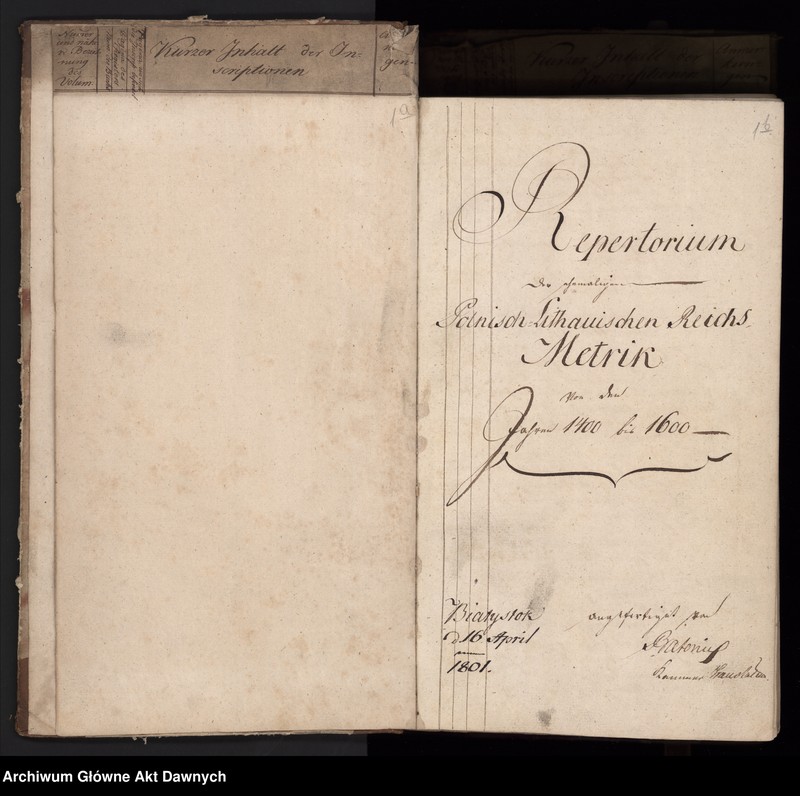 Kurzer Inhalt der In-
scriptionen
1a
1b
Repertorium
Der ehemaligen
Polnisch-Lithauischen Reichs-
Metrik
Von den
Jahren 1400 bis 1600
Białystok
d 16 April
1801.
angefertiget von
Kammer
Archiwum Główne Akt Dawnych